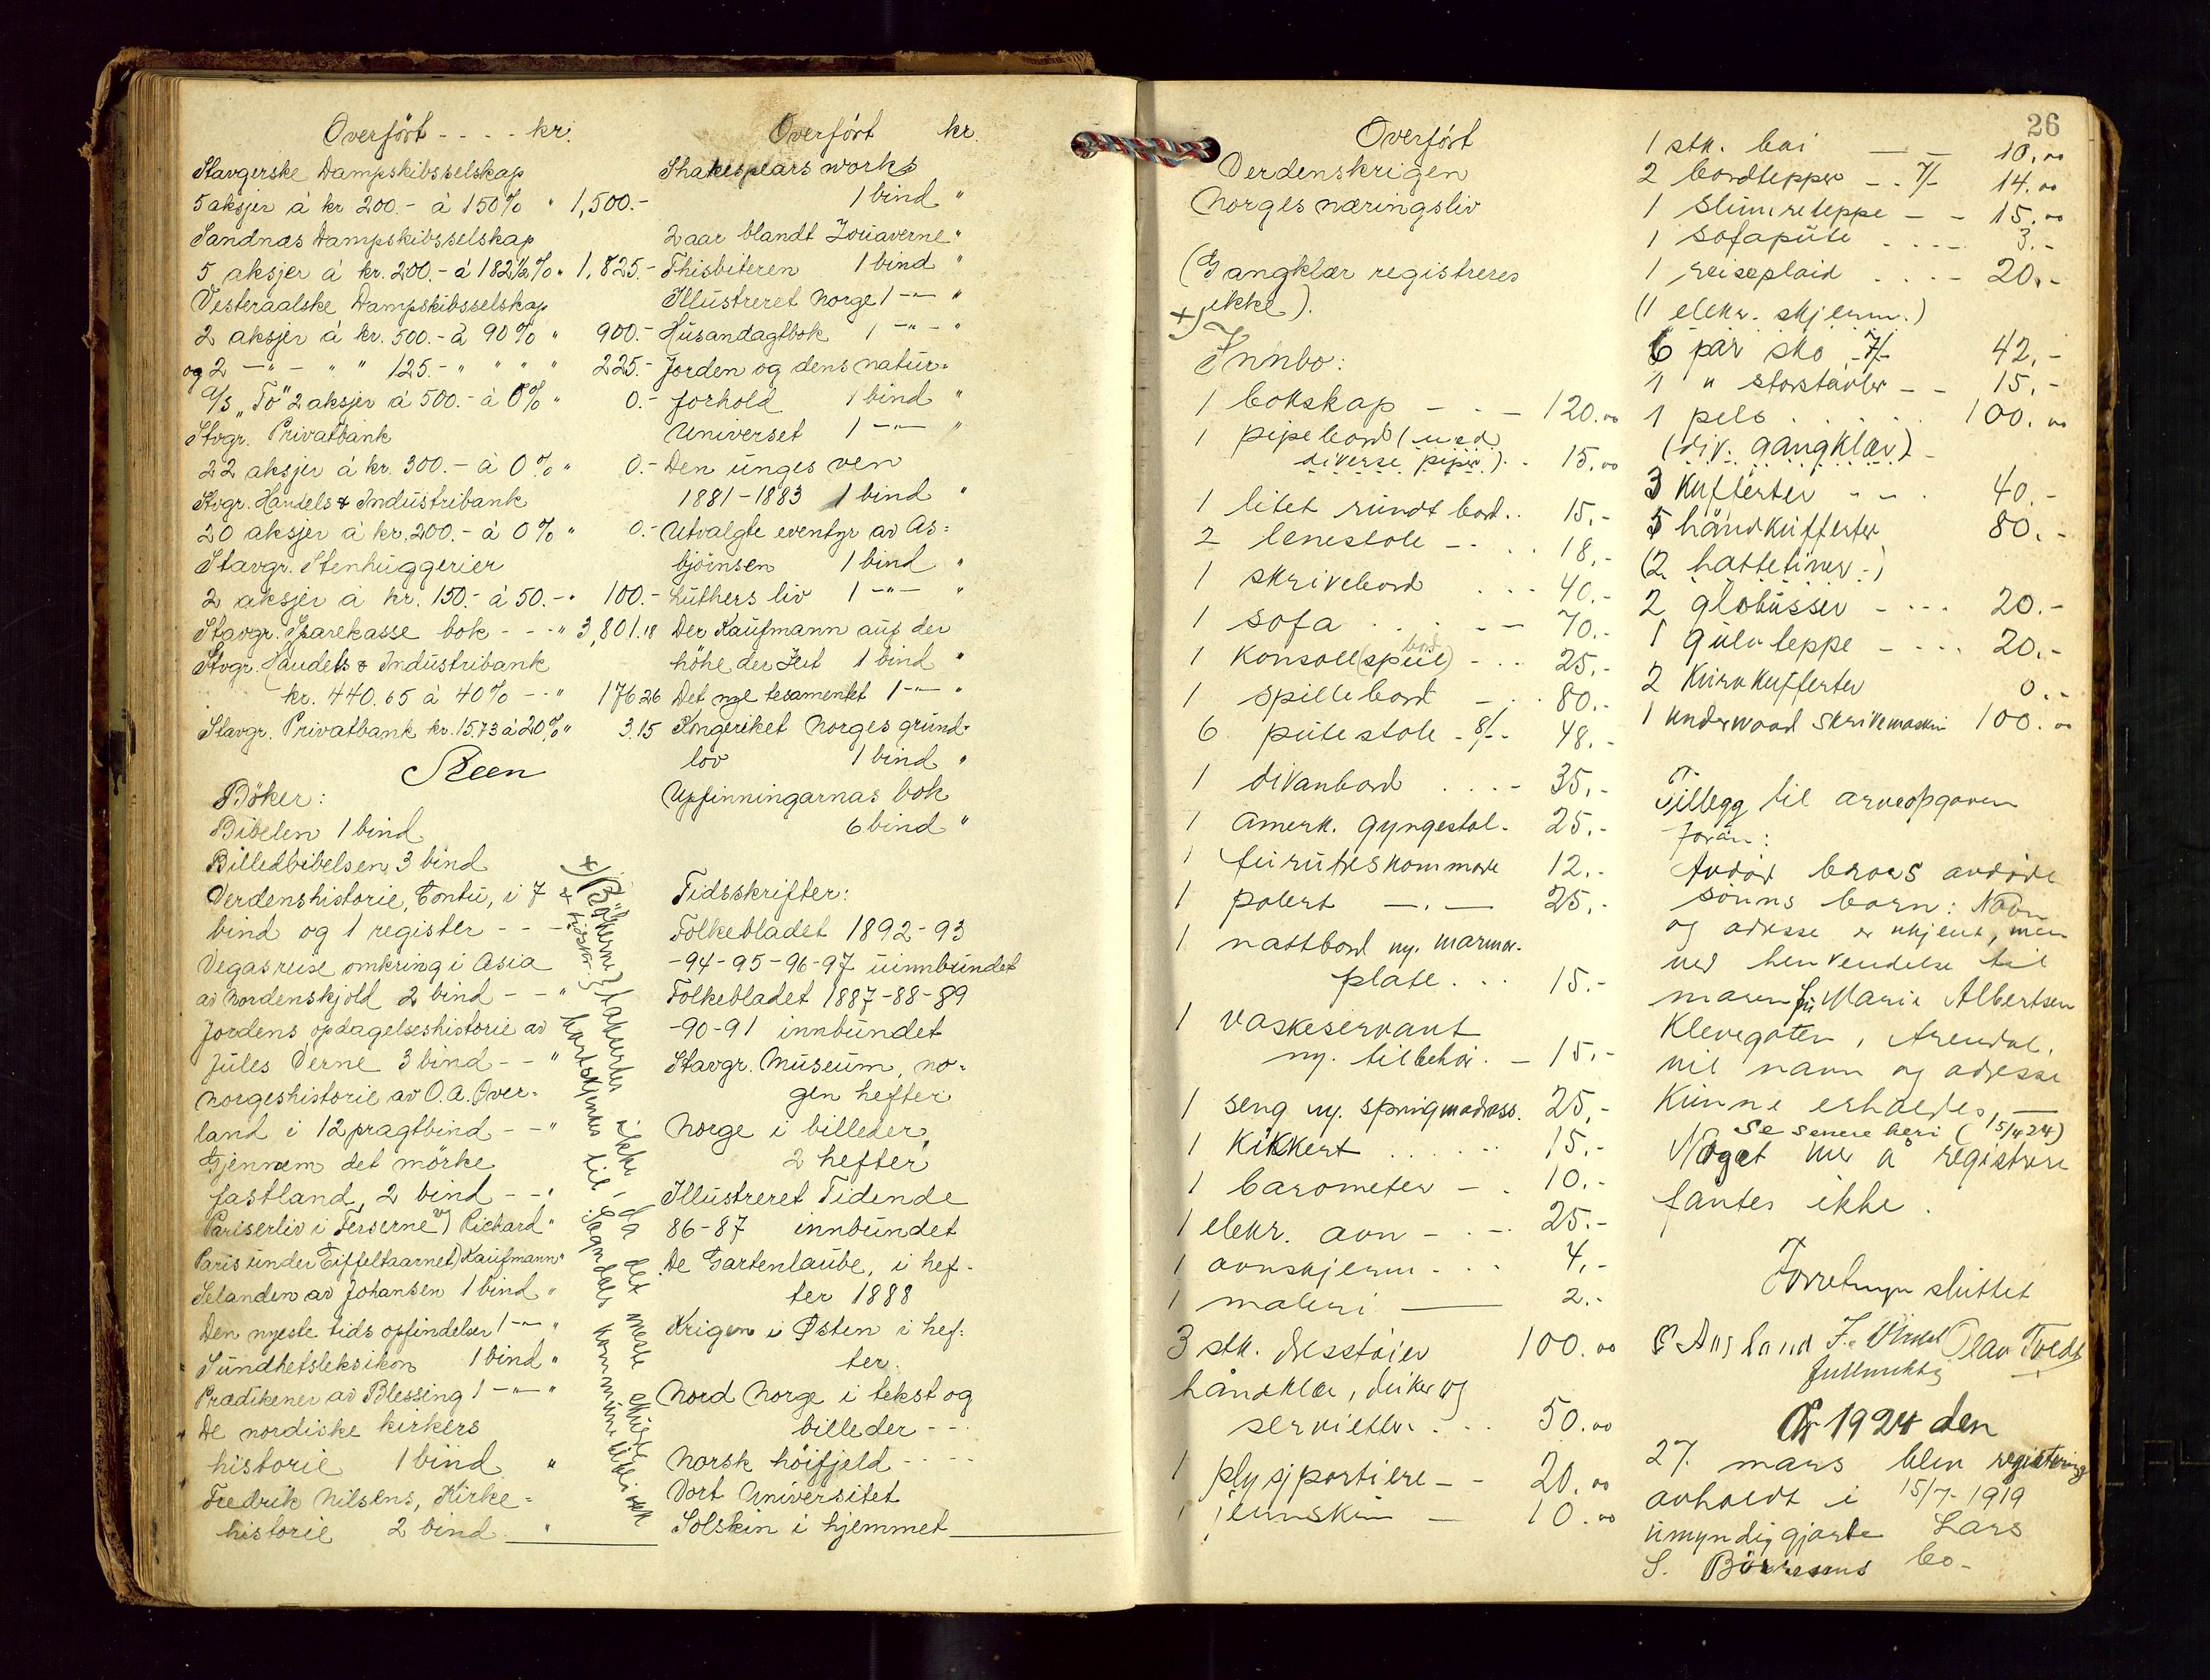 Overført - - - - kr.
Stavgerske Dampskibsselskap
5 aksjer á kr 200.- á 150% " 1,500.-
Sandnæs Dampskibsselskap
5 aksjer á kr. 200.- á 182½% " 1,825.-
Vesteraalske Dampskibsselskap
2 aksjer á kr. 500.- á 90% " 900.-
og 2 -"- - " " 125.- " " " " 225.-
A/S "Tö" 2 aksjer á 500.- á 0% " 0.-
Stvgr. Privatbank
22 aksjer á kr. 300.- á 0% " 0.-
Stvgr. Handels & Industribank
20 aksjer á kr. 200.- á 0% " 0.-
Stavgr. Stenhuggerier
2 aksjer á kr. 150.- á 50.- " 100.-
Stavgr. Sparekasse bok - - - " 3,801.18
Stvgr. Handels & Industribank
kr. 440.65 á 40% - - " 176.26
Stavgr. Privatbank kr. 15.73 á 20% " 3.15
Steen
Böker:
Bibelen 1 bind
Billedbibelsen, 3 bind
Verdenshistorie, Contu, i 7
bind og 1 register - - -
Vegas reise omkring i Asia
av Nordenskjold 2 bind - - "
Jordens opdagelseshistorie av
Jules Verne 3 bind - - "
Norgeshistorie av O. A. Øver-
land i 12 pragtbind - - "
Gjennem det mörke
fastland, 2 bind - - "
Pariserliv i Ferserne av) Richard "
Paris under Eiffeltaarnet) Kaufmann "
Selanden av Johansen 1 bind "
Den nyeste tids opfindelser 1 -"- "
Sundhetsleksikon 1 bind "
Prædikener av Blessing 1 -"- "
De nordiske kirkers
historie 1 bind "
Fredrik Nilsens, Kirke-
historie 2 bind "
+) Bökerne & tidsskr.} taksertes ikke, da det meste skulde
bortskjenkes til Sogndals kommunebibliotek
Overført kr.
Shakespears works
1 bind "
2 aar blandt Zouaverne "
Thisbiteren 1 bind "
Illustreret Norge 1 -"- "
Husandagtbok 1 -"- "
Jorden og dens natur-
forhold 1 bind "
Universet 1 -"- "
Den unges ven
1881-1883 1 bind "
Utvalgte eventyr av As-
björnsen 1 bind "
Luthers liv 1 -"- "
Der Kaufmann auf der
höhe der Zeit 1 bind "
Det nye tesamentet 1 -"- "
Kongeriket Norges grund-
lov 1 bind "
Upfinningarnas bok
6 bind "
Tidsskrifter:
Folkebladet 1892-93
-94-95-96-97 uinnbundet
Folkebladet 1887-88-89
-90-91 innbundet
Stavgr. Museum, no-
gen hefter
Norge i billeder,
2 hefter
Illustreret Tidende
86-87 innbundet
De Gartenlaube, i hef-
ter 1888
Krigen i Østen i hef-
ter.
Nord Norge i tekst og
billeder - - -
Norsk höifjeld - - - -
Vort Universitet
Solskin i hjemmet
26
Overført
Verdenskrigen
Norges næringsliv
(Gangklær registreres
+) ikke).
Innbo:
1 bokskap - - - 120.00
1 pipebord (med
diverse piper) . . 15.00
1 litet rundt bord . . 15.-
2 lenestole - . . . 18.-
1 skrivebord . . . 40.-
1 sofa . . . - - 70.-
1 konsoll(speil)bord - . . 25.-
1 spillebord - . . 80.-
6 pütestole - 8/- - 48.-
1 divanbord . . . - 35.-
1 Amerk. gyngestol. 25.-
1 furutreskommode 12.-
1 polert -.- 25.-
1 nattbord m. marmor-
plate . . . 15.-
1 vaskeservant
m. tilbehör. - 15.-
1 seng m. springmadrass. 25.-
1 kikkert . . . . . . 15.-
1 barometer - . 10.-
1 elekr. ovn - . - . 25.-
1 ovnskjerm - . . . 4.-
1 maleri - 2.-
3 stk. dresstöier 100.00
håndklær, duker og
servietter . . . 50.00
1 plysjportiere - - 20.00
1 - 10.00
1 stk. boi - - 10.00
2 bordtepper - . . 7/- 14.00
1 slumreteppe - - 15.00
1 sofapute . . . - - 3.-
1 reiseplaid . . . - 20.-
(1 elekr. skjerm.)
6 par sko 7/- 42.-
1 " storstövler - - 15.-
1 pels . . . . . . 100.00
(div. gangklær) -
3 kufferter - - . 40.-
5 håndkufferter 80.-
(2 hatteöiner -)
2 globusser - . . . . 20.-
1 gulvteppe - . . . . 20.-
2 kurvkufferter 0.-
1 underwood skrivemaskin 100.00
Tillegg til arveopgaven
foran:
Avdöd brors avdöde
sönns barn: Navn
og adresse er ukjent, men
ved henvendelse til
moren fru Marie Albertsen
Klevegaten, Arendal,
vil navn og adresse
kunne erholdes, -
se senere heri (15/4 24)
Noget mer å registrere
fantes ikke.
Forretningen sluttet
Olav Tvedt
fullmektig
År 1924 den
27. mars blev registrering
avholdt i 15/7-1919
umyndiggjorte Lars
S. Börresens bo-